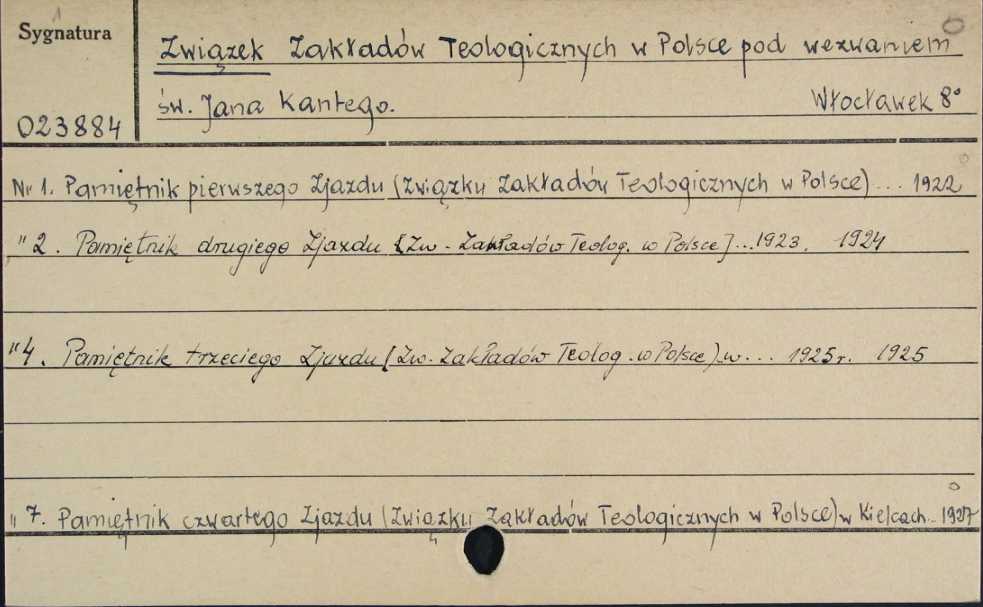 Sygnatura
Związek Zakładów Teologicznych w Polsce pod wezwaniem
św. Jana Kantego. Włocławek 8°
023884
Nr 1. Pamiętnik pierwszego Zjazdu (Związku Zakładów Teologicznych w Polsce) ... 1922
" 2. Pamiętnik drugiego Zjazdu [Zw. Zakładów Teolog. w Polsce] ... 1923. 1924
" 4. Pamiętnik trzeciego Zjazdu (Zw. Zakładów Teolog. w Polsce) w ... 1925r. 1925
" 7. Pamiętnik czwartego Zjazdu (Związku Zakładów Teologicznych w Polsce) w Kielcach.. 1927